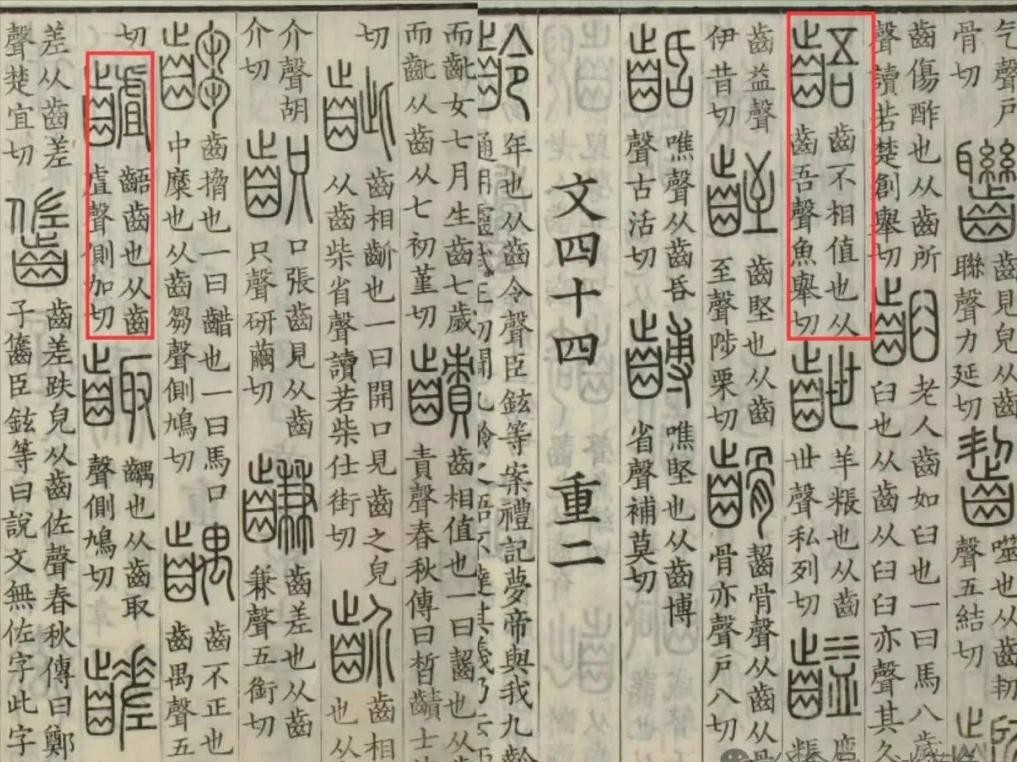 气聲戶骨切
齒見皃从齒聯聲力延切
齧 噬也从齒㓞聲五結切
齒傷酢也从齒所聲讀若楚創舉切
齨 老人齒如臼也一曰馬八歲齒臼也从齒从臼臼亦聲其久
齬 齒不相值也从齒吾聲魚舉切
齛 羊粻也从齒世聲私列切
齸 粻
齒益聲伊昔切
齒堅也从齒至聲陟栗切
齧骨聲从齒从骨骨亦聲戶八切
噍聲从齒昏聲古活切
噍堅也从齒博省聲補莫切
文四十四 重二
齡 年也从齒令聲臣鉉等案禮記夢帝與我九齡
而齔女七月生齒七歲而齔从齒从七初堇切
齒相值也一曰齧也从齒責聲春秋傳曰晳
切
齜 齒相齘也一曰開口見齒之皃从齒柴省聲讀若柴仕街切
齘 齒相也从
介聲胡介切
口張齒見从齒只聲研繭切
齒差也从齒兼聲五銜切
齺 齒搚也一曰齰也一曰馬口中糜也从齒芻聲側鳩切
齵 齒不正也齒禺聲五
切
齇 齬齒也从齒虘聲側加切
齱 齵也从齒取聲側鳩切
齹
差从齒差聲楚宜切
齒差跌皃从齒佐聲春秋傳曰鄭子臣鉉等曰說文無佐字此字